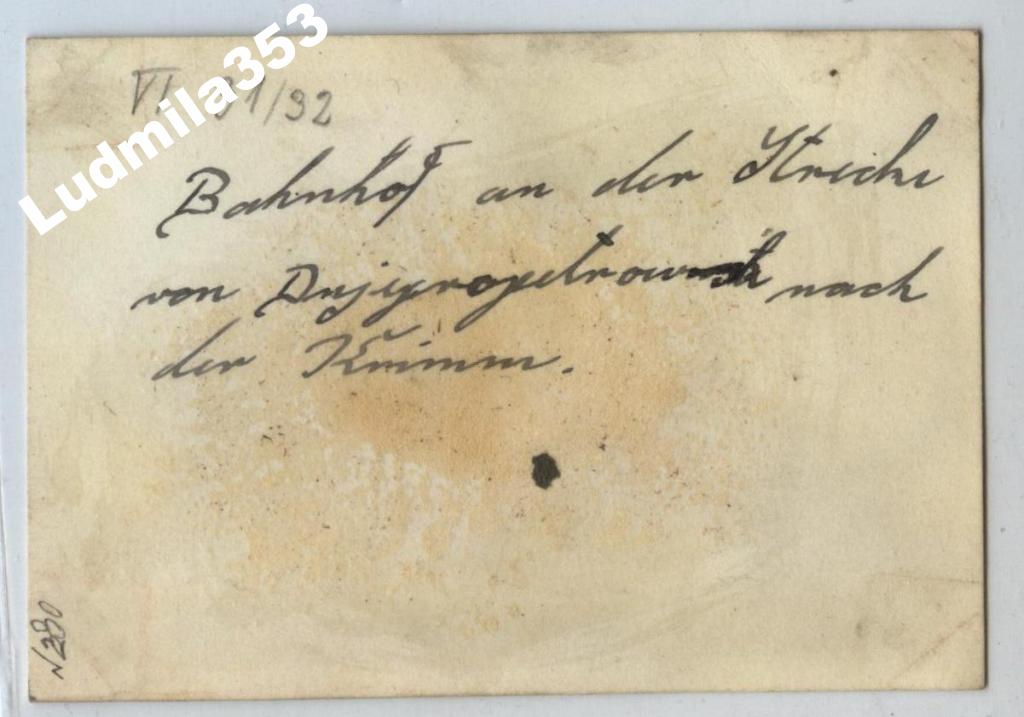 Ludmila353
VI 31/32
Bahnhof an der Strecke
von Dnjepropetrowsk nach
der Krimm.
N 280